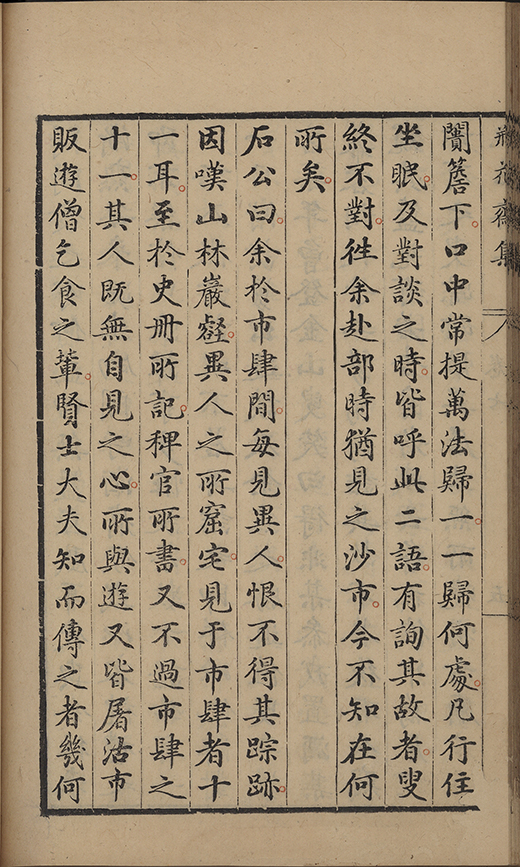 瓶花齋集
闤簷下口中常提萬法歸一一歸何處凡行住
坐眠及對談之時皆呼此二語有詢其故者叟
終不對徃余赴部時猶見之沙市今不知在何
所矣
石公曰余於市肆間每見異人恨不得其踪跡
因嘆山林巖壑異人之所窟宅見于市肆者十
一耳至於史册所記稗官所書又不過市肆之
十一其人既無自見之心所與遊又皆屠沽市
販遊僧乞食之輩賢士大夫知而傳之者幾何